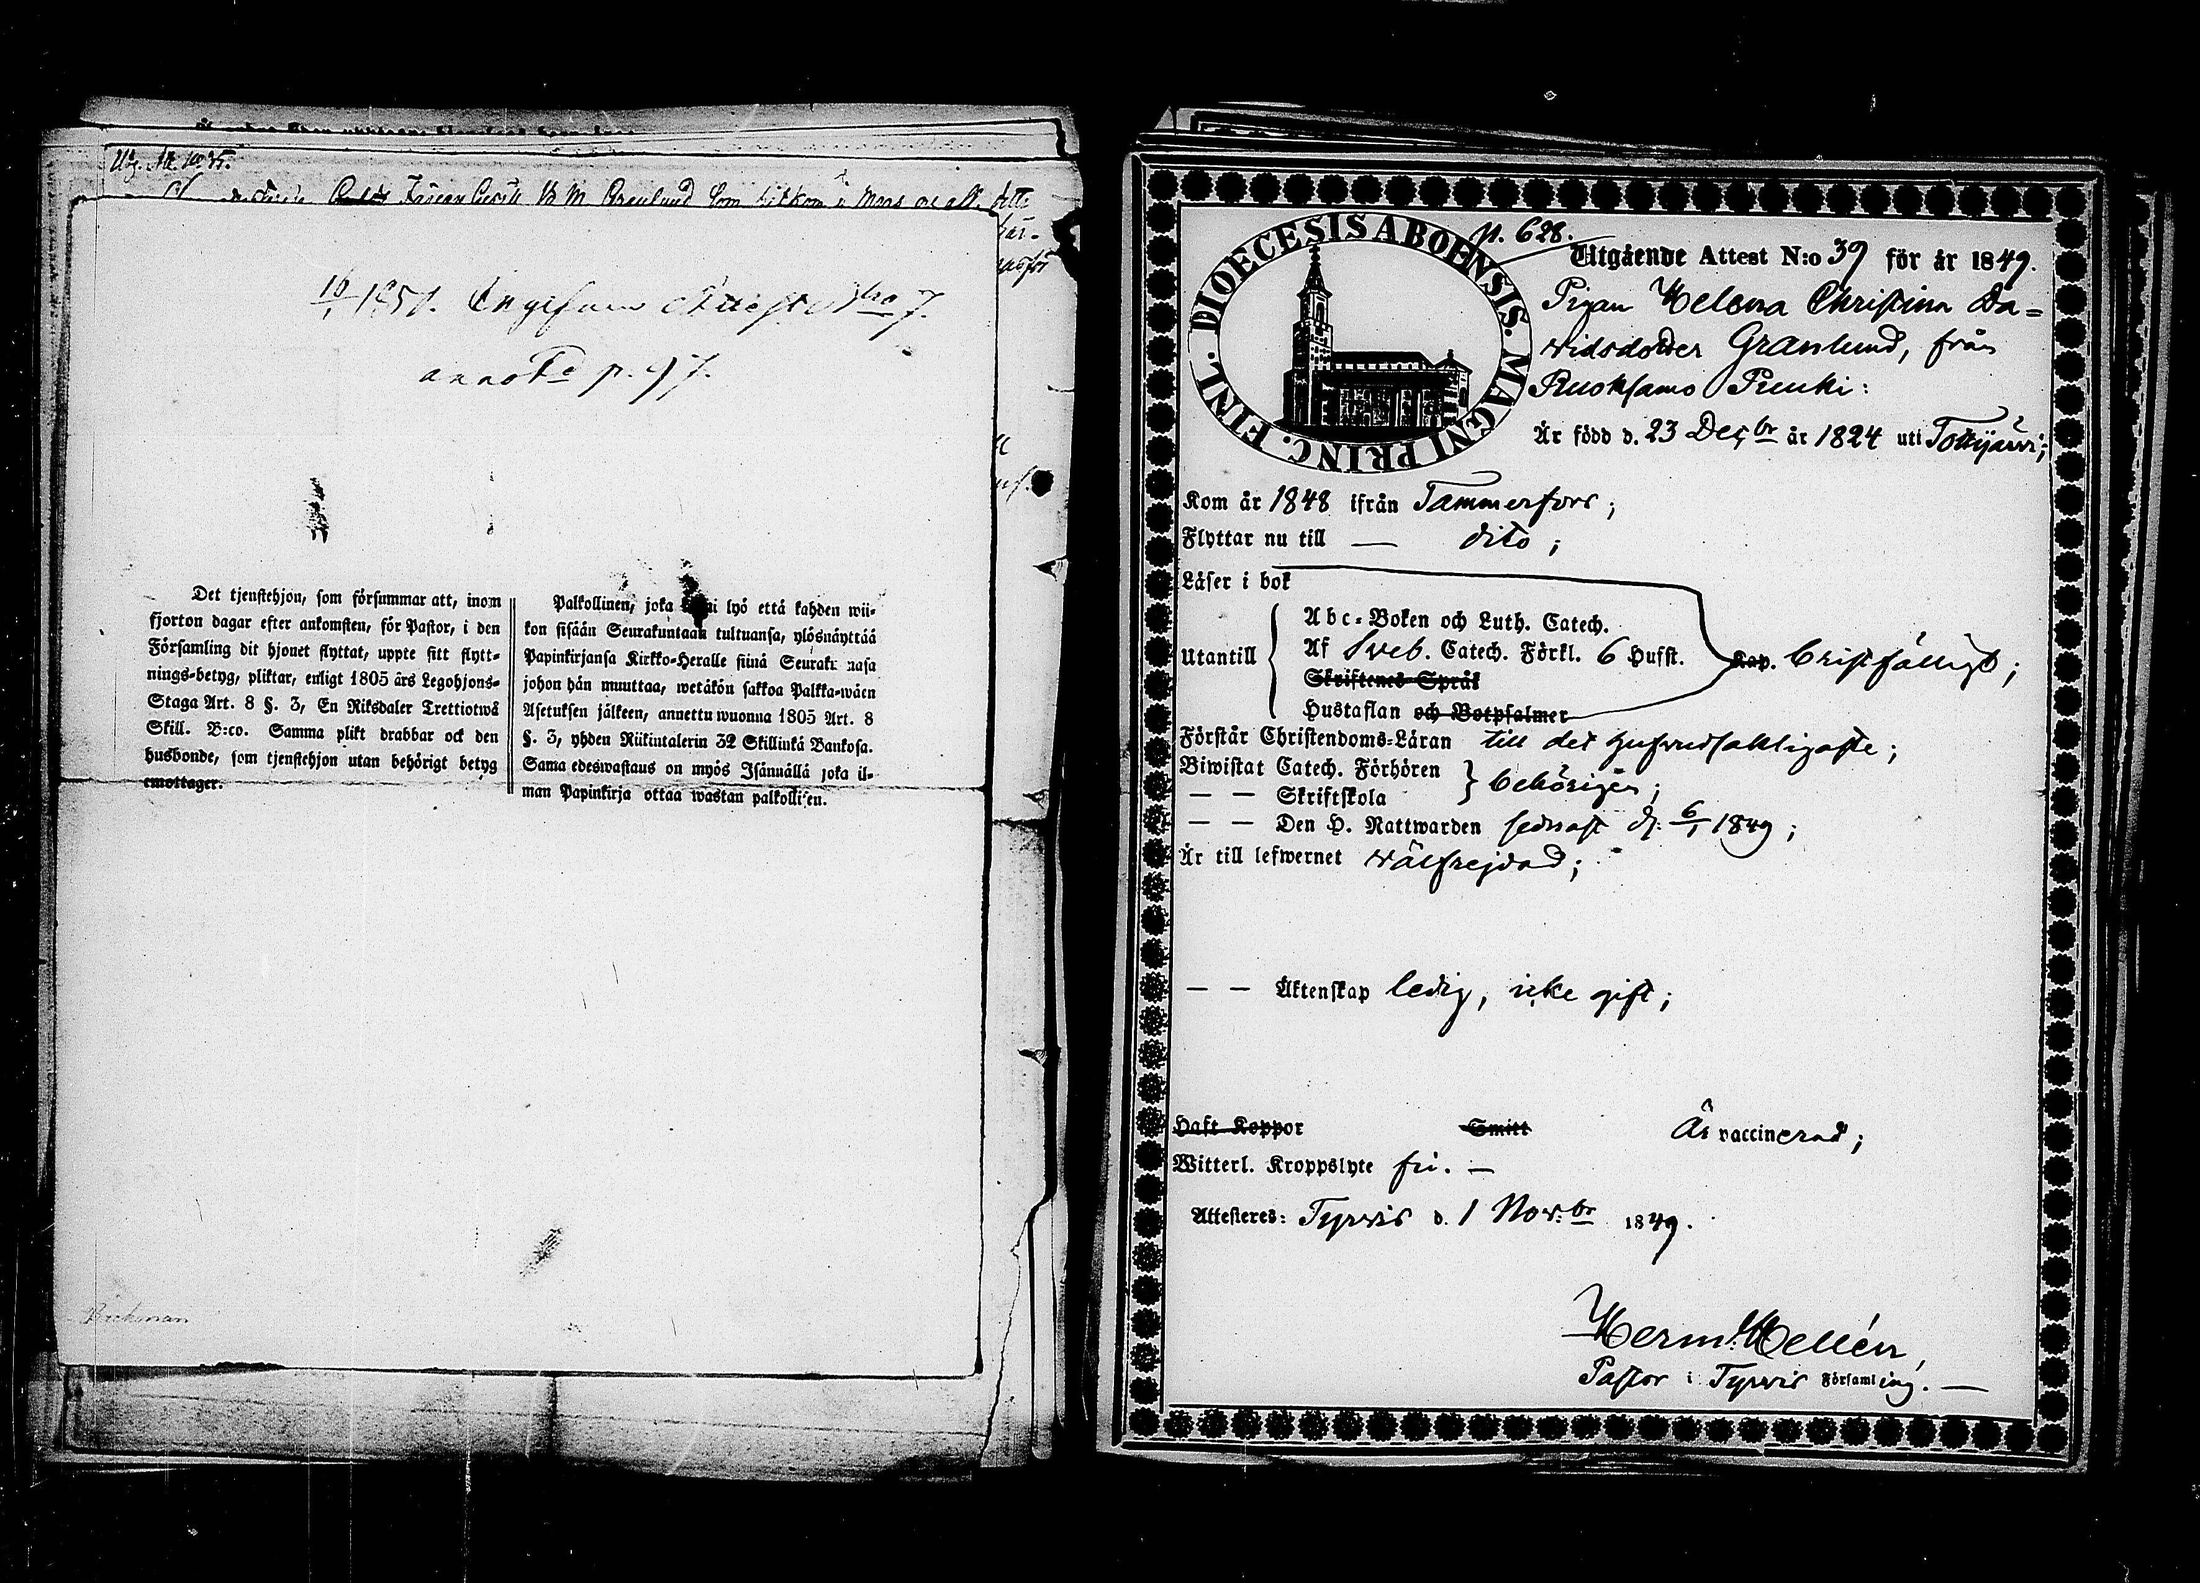 Utg. Att. No 35.
Granlund som hitkom
16/1 1850. Ingifven Attest Nro 7.
annotd p. 97.
Det tjenstehjon, som försummar att, inom
fjorton dagar efter ankomsten, för Pastor, i den
Församling dit hjonet flyttat, uppte sitt flytt-
nings-betyg, pliktar, enligt 1805 års Legohjons-
Staga Art. 8 §. 3, En Riksdaler Trettiotwå
Skill. B:co. Samma plikt drabbar ock den
husbonde, som tjenstehjon utan behörigt betyg
emottager.
Palkollinen, joka lyö että kahden wii-
kon sisään Seurakuntaan tultuansa, ylösnäyttää
Papinkirjansa Kirkko-Heralle siinä Seuraku nasa
johon hän muuttaa, wetäkön sakkoa Palkka-wäen
Asetuksen jälkeen, annettu wuonna 1805 Art. 8
§. 3, yhden Riikintalerin 32 Skillinkä Bankosa.
Sama edeswastaus on myös Isännällä joka il-
man Papinkirja ottaa wastan palkollisen.
Beckman
DIOECESIS ABOENSIS. MAGNI PRINC. FINL.
p. 628.
Utgående Attest N:o 39 för år 1849.
Pigan Helena Christina Da=
vidsdotter Granlund, från
Ruoksamo Prunki:
Är född d. 23 Dec:br år 1824 uti Tottijärvi;
Kom år 1848 ifrån Tammerfors;
Flyttar nu till — dito;
Läser i bok
Utantill
Abc-Boken och Luth. Catech.
Af Sveb. Catech. Förkl. 6 Hufst. Kap. bristfälligt;
Skriftenes Språk
Hustaflan och Botpsalmer
Förstår Christendoms-Läran till det hufvudsakligaste;
Biwistat Catech. Förhören
— — Skriftskola } behörigen;
— — Den H. Nattwarden sednast d. 6/1 1849;
Är till lefwernet välfrejdad;
— — Äktenskap ledig, icke gift;
Haft Koppor Smitt Är vaccinerad;
Witterl. Kroppslyte fri. —
Attesteres: Tyrvis d. 1 Nov:br 1849.
Herm: Hellén,
Pastor i Tyrvis Församling. —